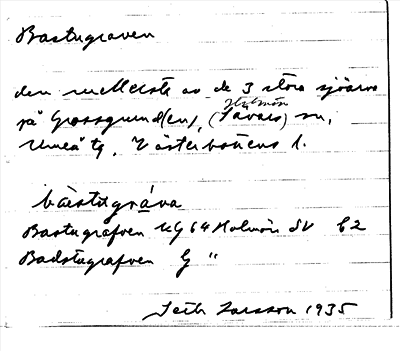 Bastugraven
den mellersta av de 3 stora sjöarna
på Grossgrund(en), (Sävars) sn,
Holmön
Umeå tg, Västerbottens l.
bastugráva
Bastugrafven KG 64 Holmön SV b2
Badstugrafven G "
Seth Larsson 1935